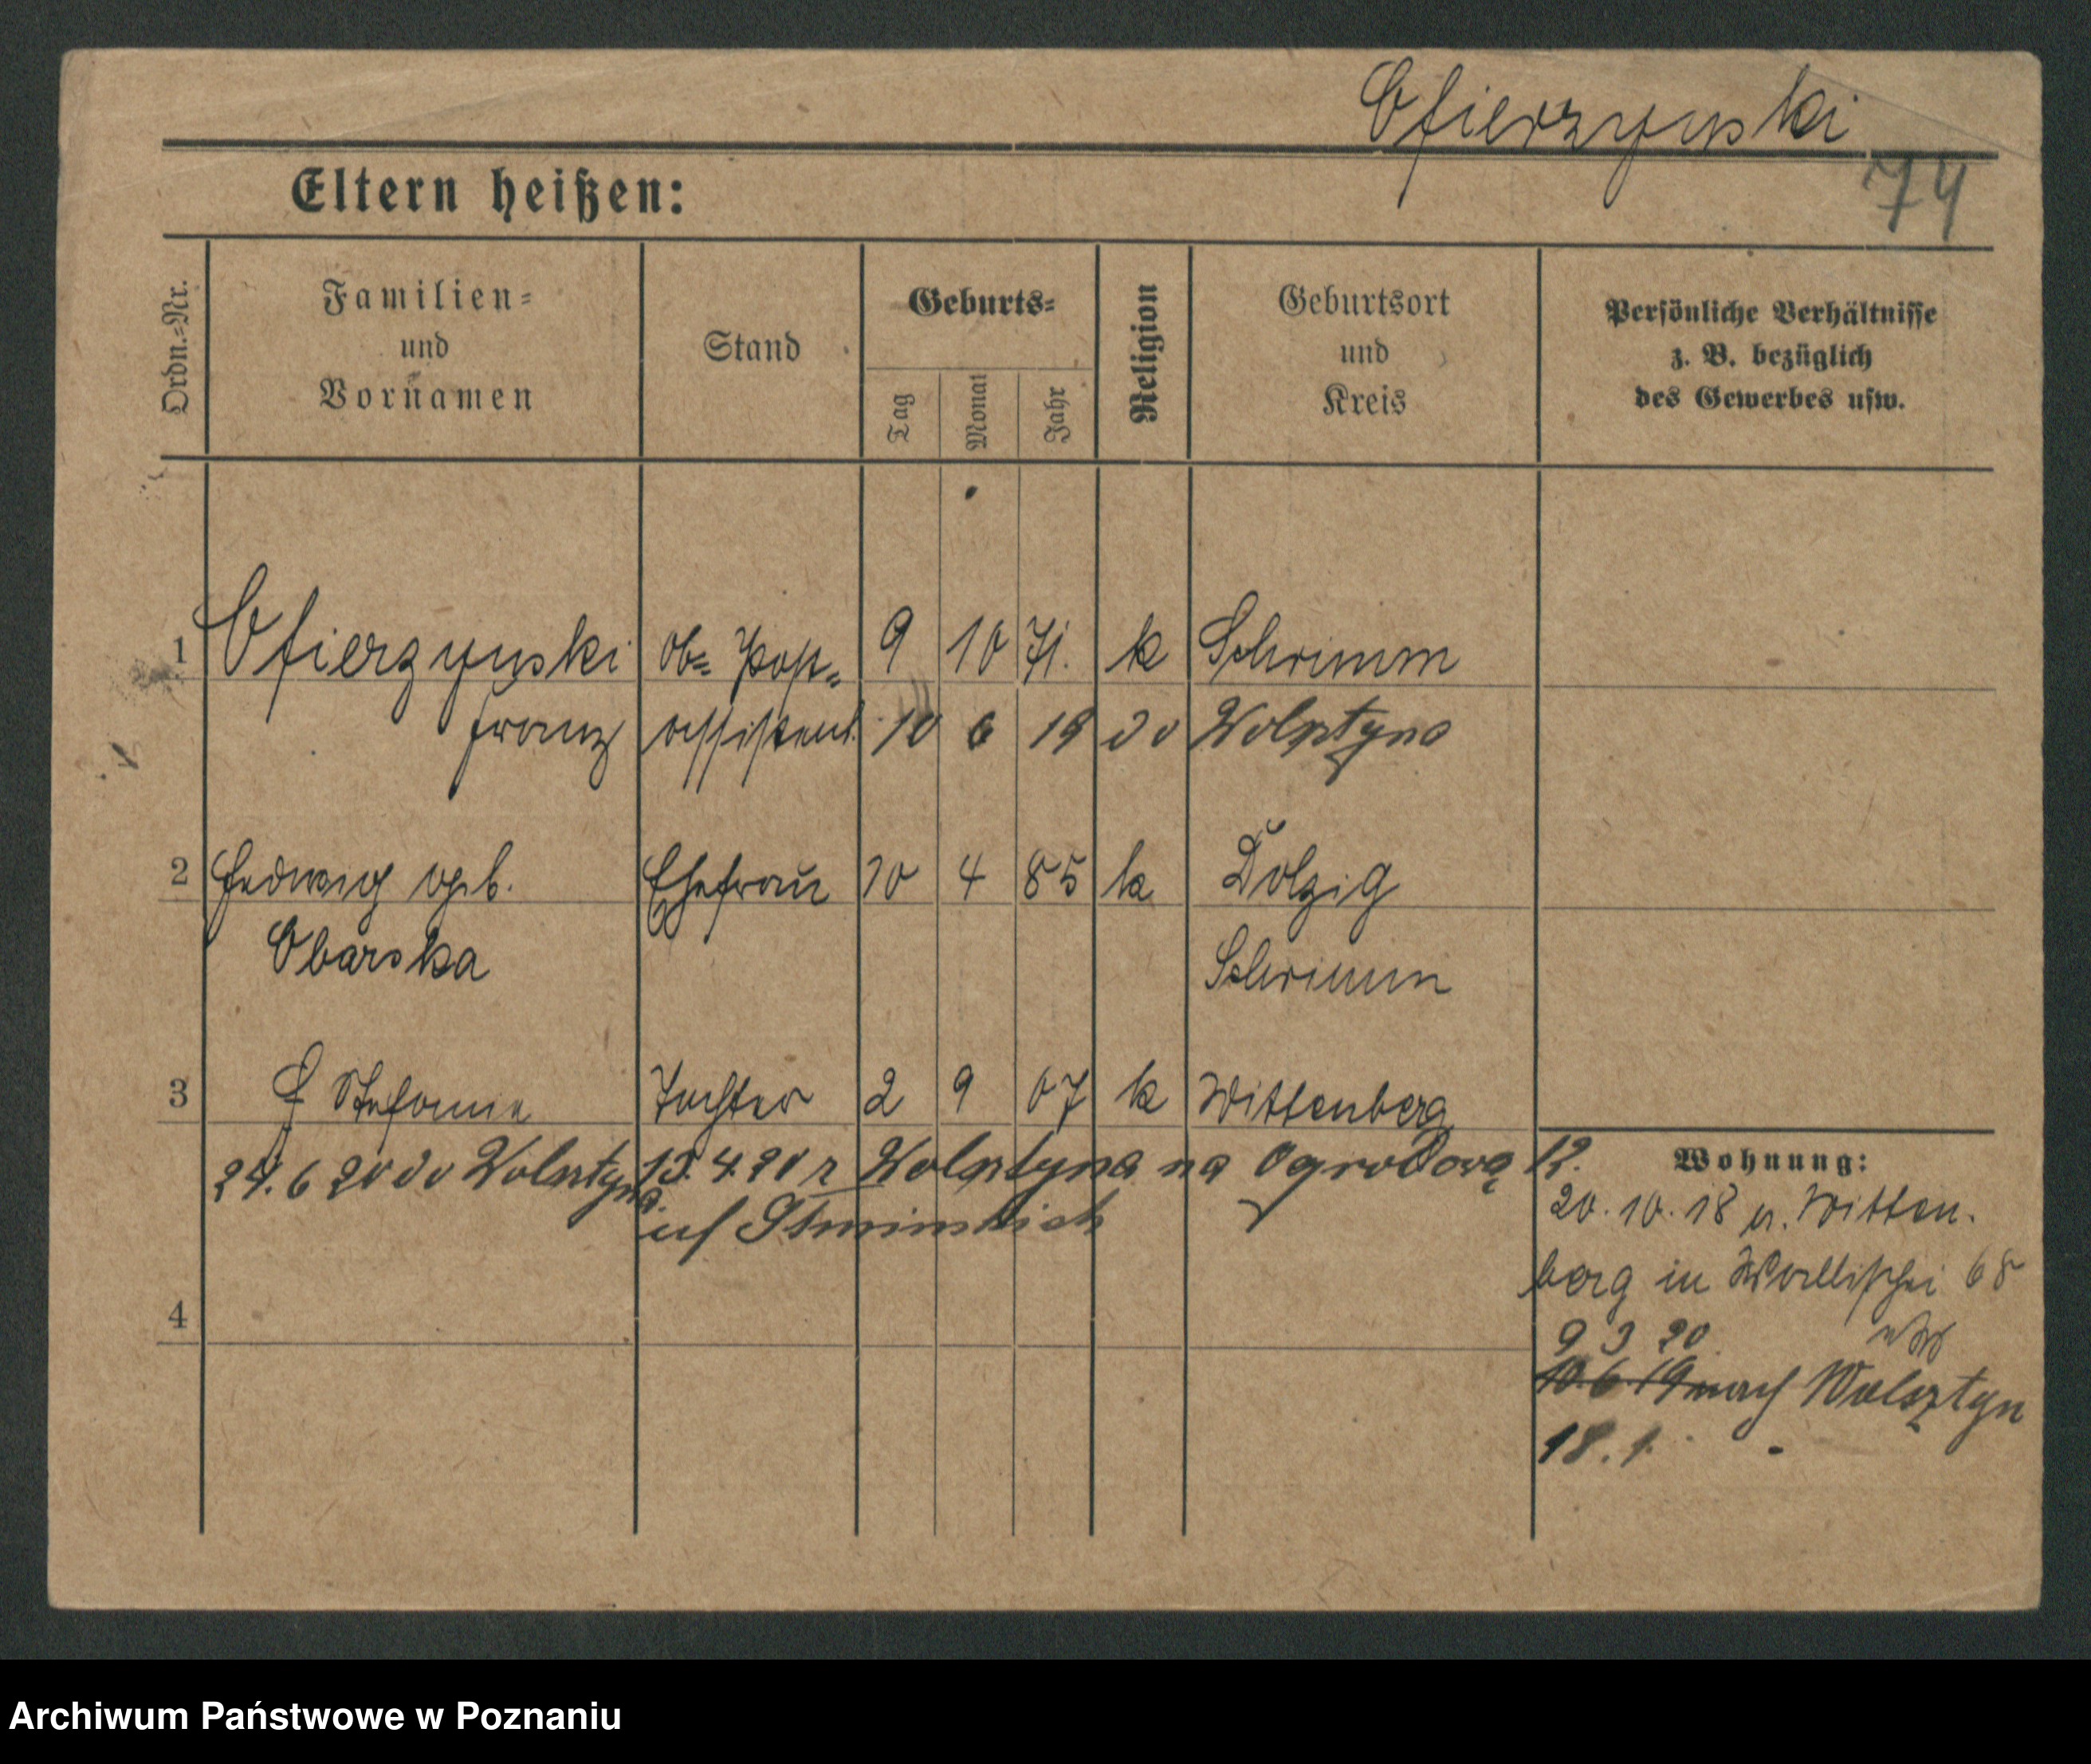 Ofierzynski
74
Eltern heißen:
Ordn.-Nr.
Familien-
und
Vornamen
Stand
Geburts-
Tag
Monat
Jahr
Religion
Geburtsort
und
Kreis
Persönliche Verhältnisse
z. B. bezüglich
des Gewerbes usw.
1 Ofierzynski Ob= Post= 9 10 71. k Schrimm
Franz assistent 10 6 19 do Wolsztyna
2 Hedwig geb. Ehefrau 10 4 85 k Dolzig
Obarska Schrimm
3 Stefanie Tochter 2 9 07 k Wittenberg
24.6 20 do Wolsztyna 13.4.20 z Wolsztyna na Ogrodową 12.
Wohnung:
20.10.18 v. Witten.
berg in Wallischei 68
4
9 3 20
10.6.19 nach Wolsztyn
18.1.
Archiwum Państwowe w Poznaniu